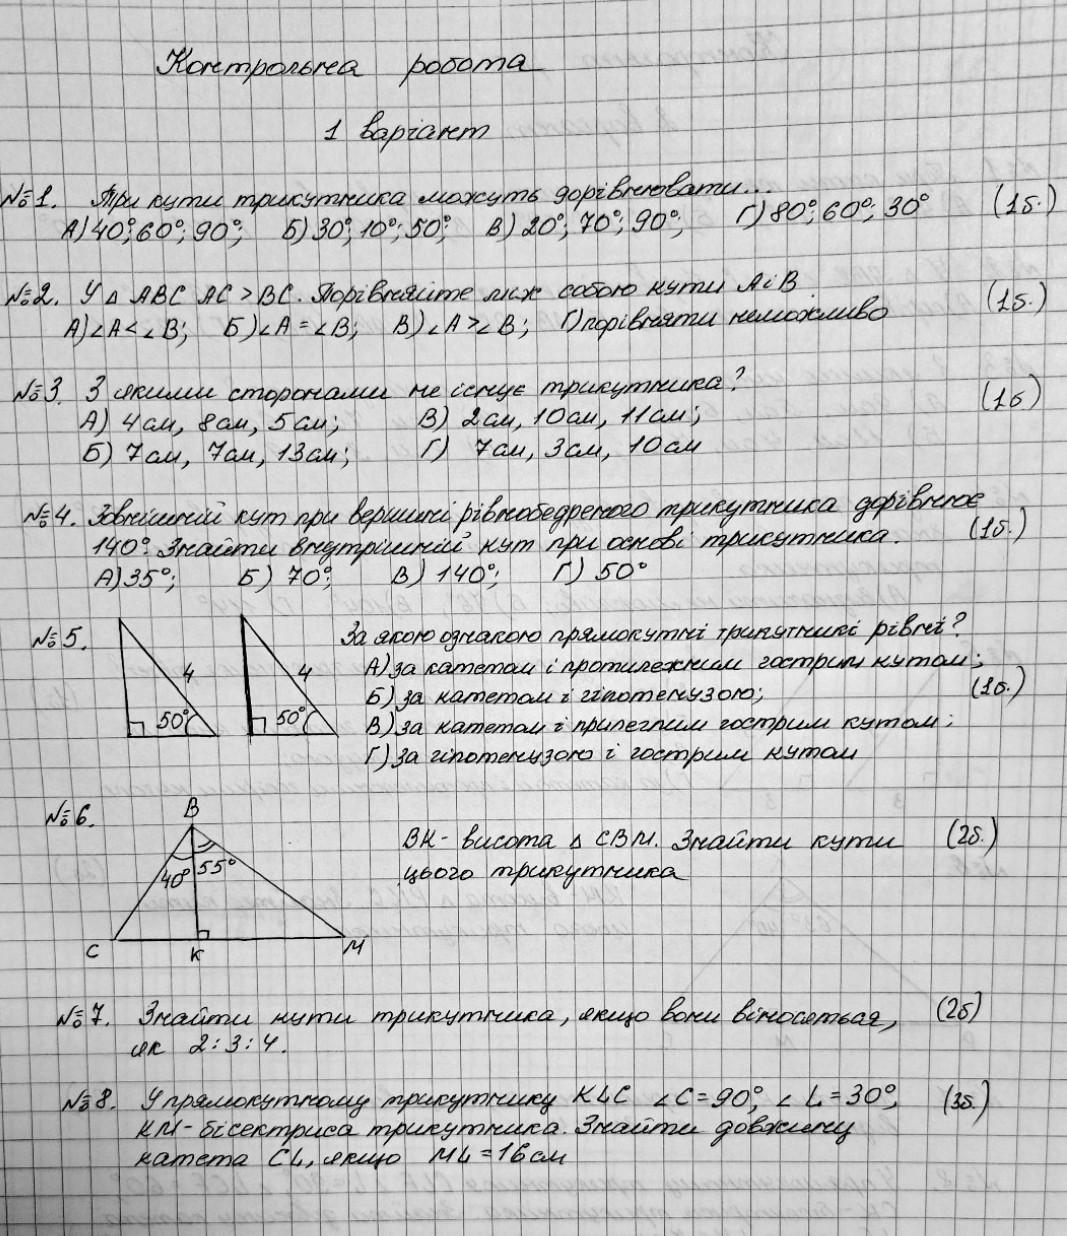 Контрольна робота
1 варіант
№1. Три кути трикутника можуть дорівнювати... (1б.)
А) 40°; 60°; 90°; Б) 30°; 10°; 50°; В) 20°; 70°; 90°; Г) 80°; 60°; 30°
№2. У △ ABC AC > BC. Порівняйте між собою кути A і B. (1б.)
А) ∠A < ∠B; Б) ∠A = ∠B; В) ∠A > ∠B; Г) порівняти неможливо
№3. З якими сторонами не існує трикутника? (1б)
А) 4см, 8см, 5см; В) 2см, 10см, 11см;
Б) 7см, 7см, 13см; Г) 7см, 3см, 10см
№4. Зовнішній кут при вершині рівнобедреного трикутника дорівнює
140°. Знайти внутрішній кут при основі трикутника. (1б.)
А) 35°; Б) 70°; В) 140°; Г) 50°
№5. За якою ознакою прямокутні трикутникі рівні?
4 50° 4 50°
А) за катетом і протилежним гострим кутом;
Б) за катетом і гіпотенузою; (1б.)
В) за катетом і прилеглим гострим кутом;
Г) за гіпотенузою і гострим кутом
№6. B
40° 55°
C K M
BK - висота △ CBM. Знайти кути (2б.)
цього трикутника
№7. Знайти кути трикутника, якщо вони віносяться, (2б)
як 2:3:4.
№8. У прямокутному трикутнику KLC ∠C=90°, ∠L=30°, (3б.)
KM - бісектриса трикутника. Знайти довжину
катета CL, якщо ML=16см